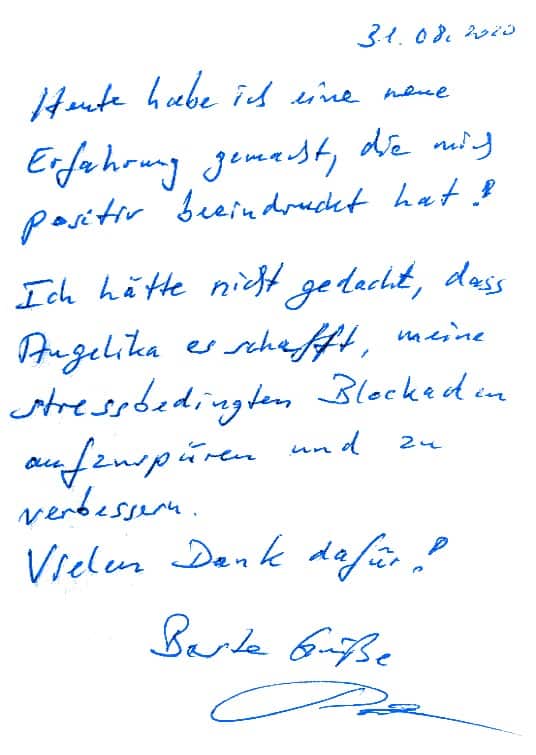 31.08.2020
Heute habe ich eine neue
Erfahrung gemacht, die mich
positiv beeindruckt hat!
Ich hätte nicht gedacht, dass
Angelika es schafft, meine
stressbedingten Blockaden
aufzuspüren und zu
verbessern.
Vielen Dank dafür!
Beste Grüße